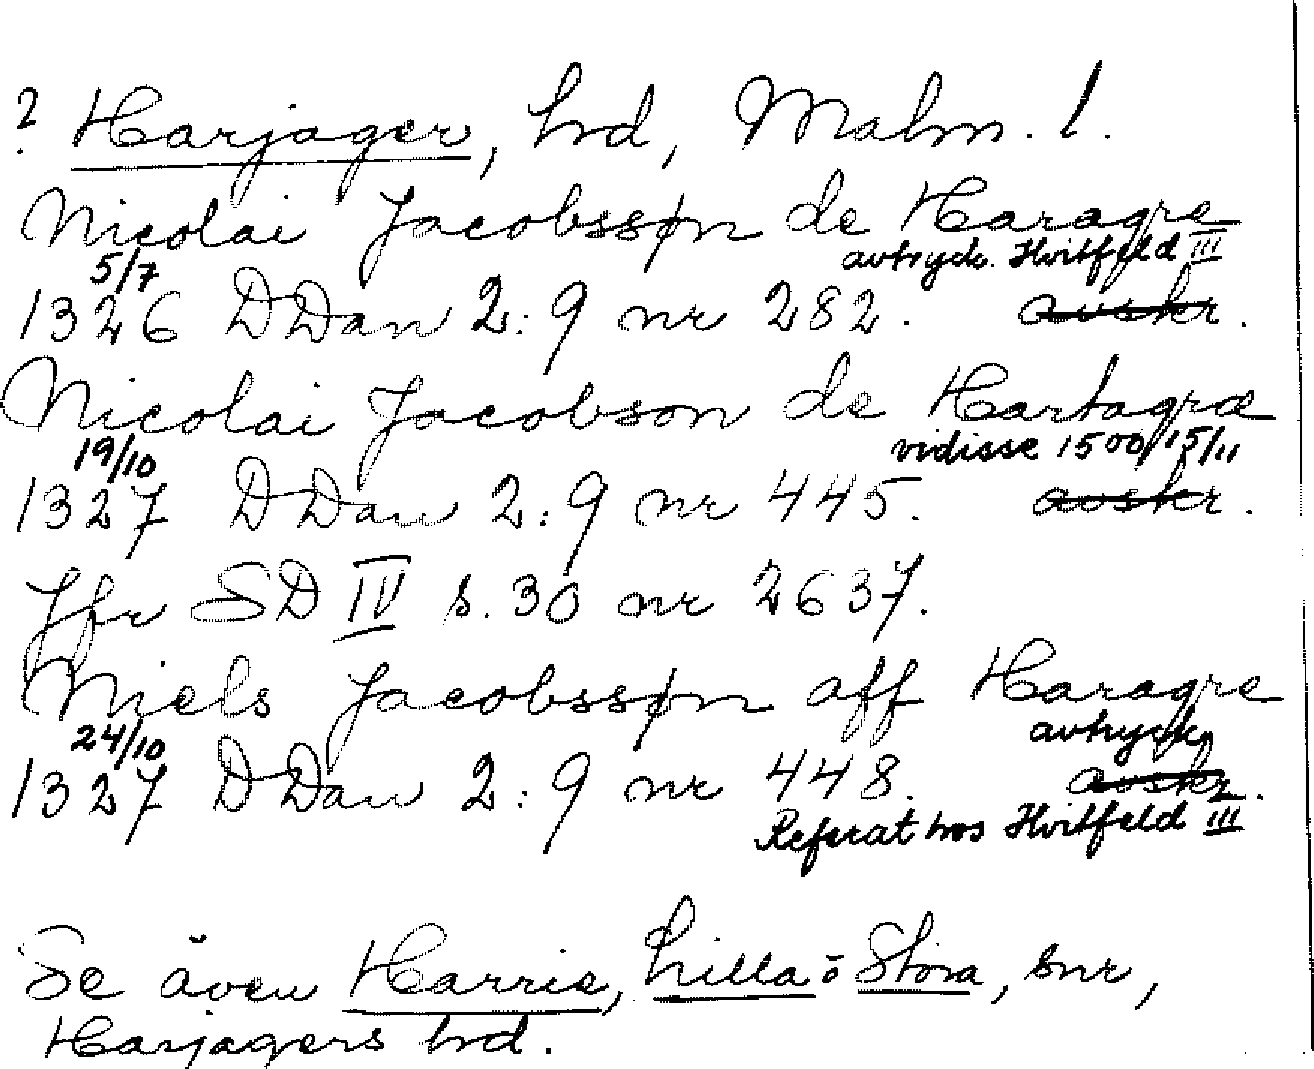 ? Harjager, hrd, Malm. l.
Nicolai Jacobssøn de Haragre
5/7 avtryck. Hvitfeld III
1326 DDan 2:9 nr 282. avskr.
Nicolai Jacobson de Hartagræ
19/10 vidisse 1500 15/11
1327 DDan 2:9 nr 445. avskr.
Jfr SD IV s. 30 nr 2637.
Niels Jacobssøn aff Haragre
24/10 avtryck
1327 DDan 2:9 nr 448. avskr.
Referat hos Hvitfeld III
Se även Harrie, Lilla o Stora, snr,
Harjagers hrd.